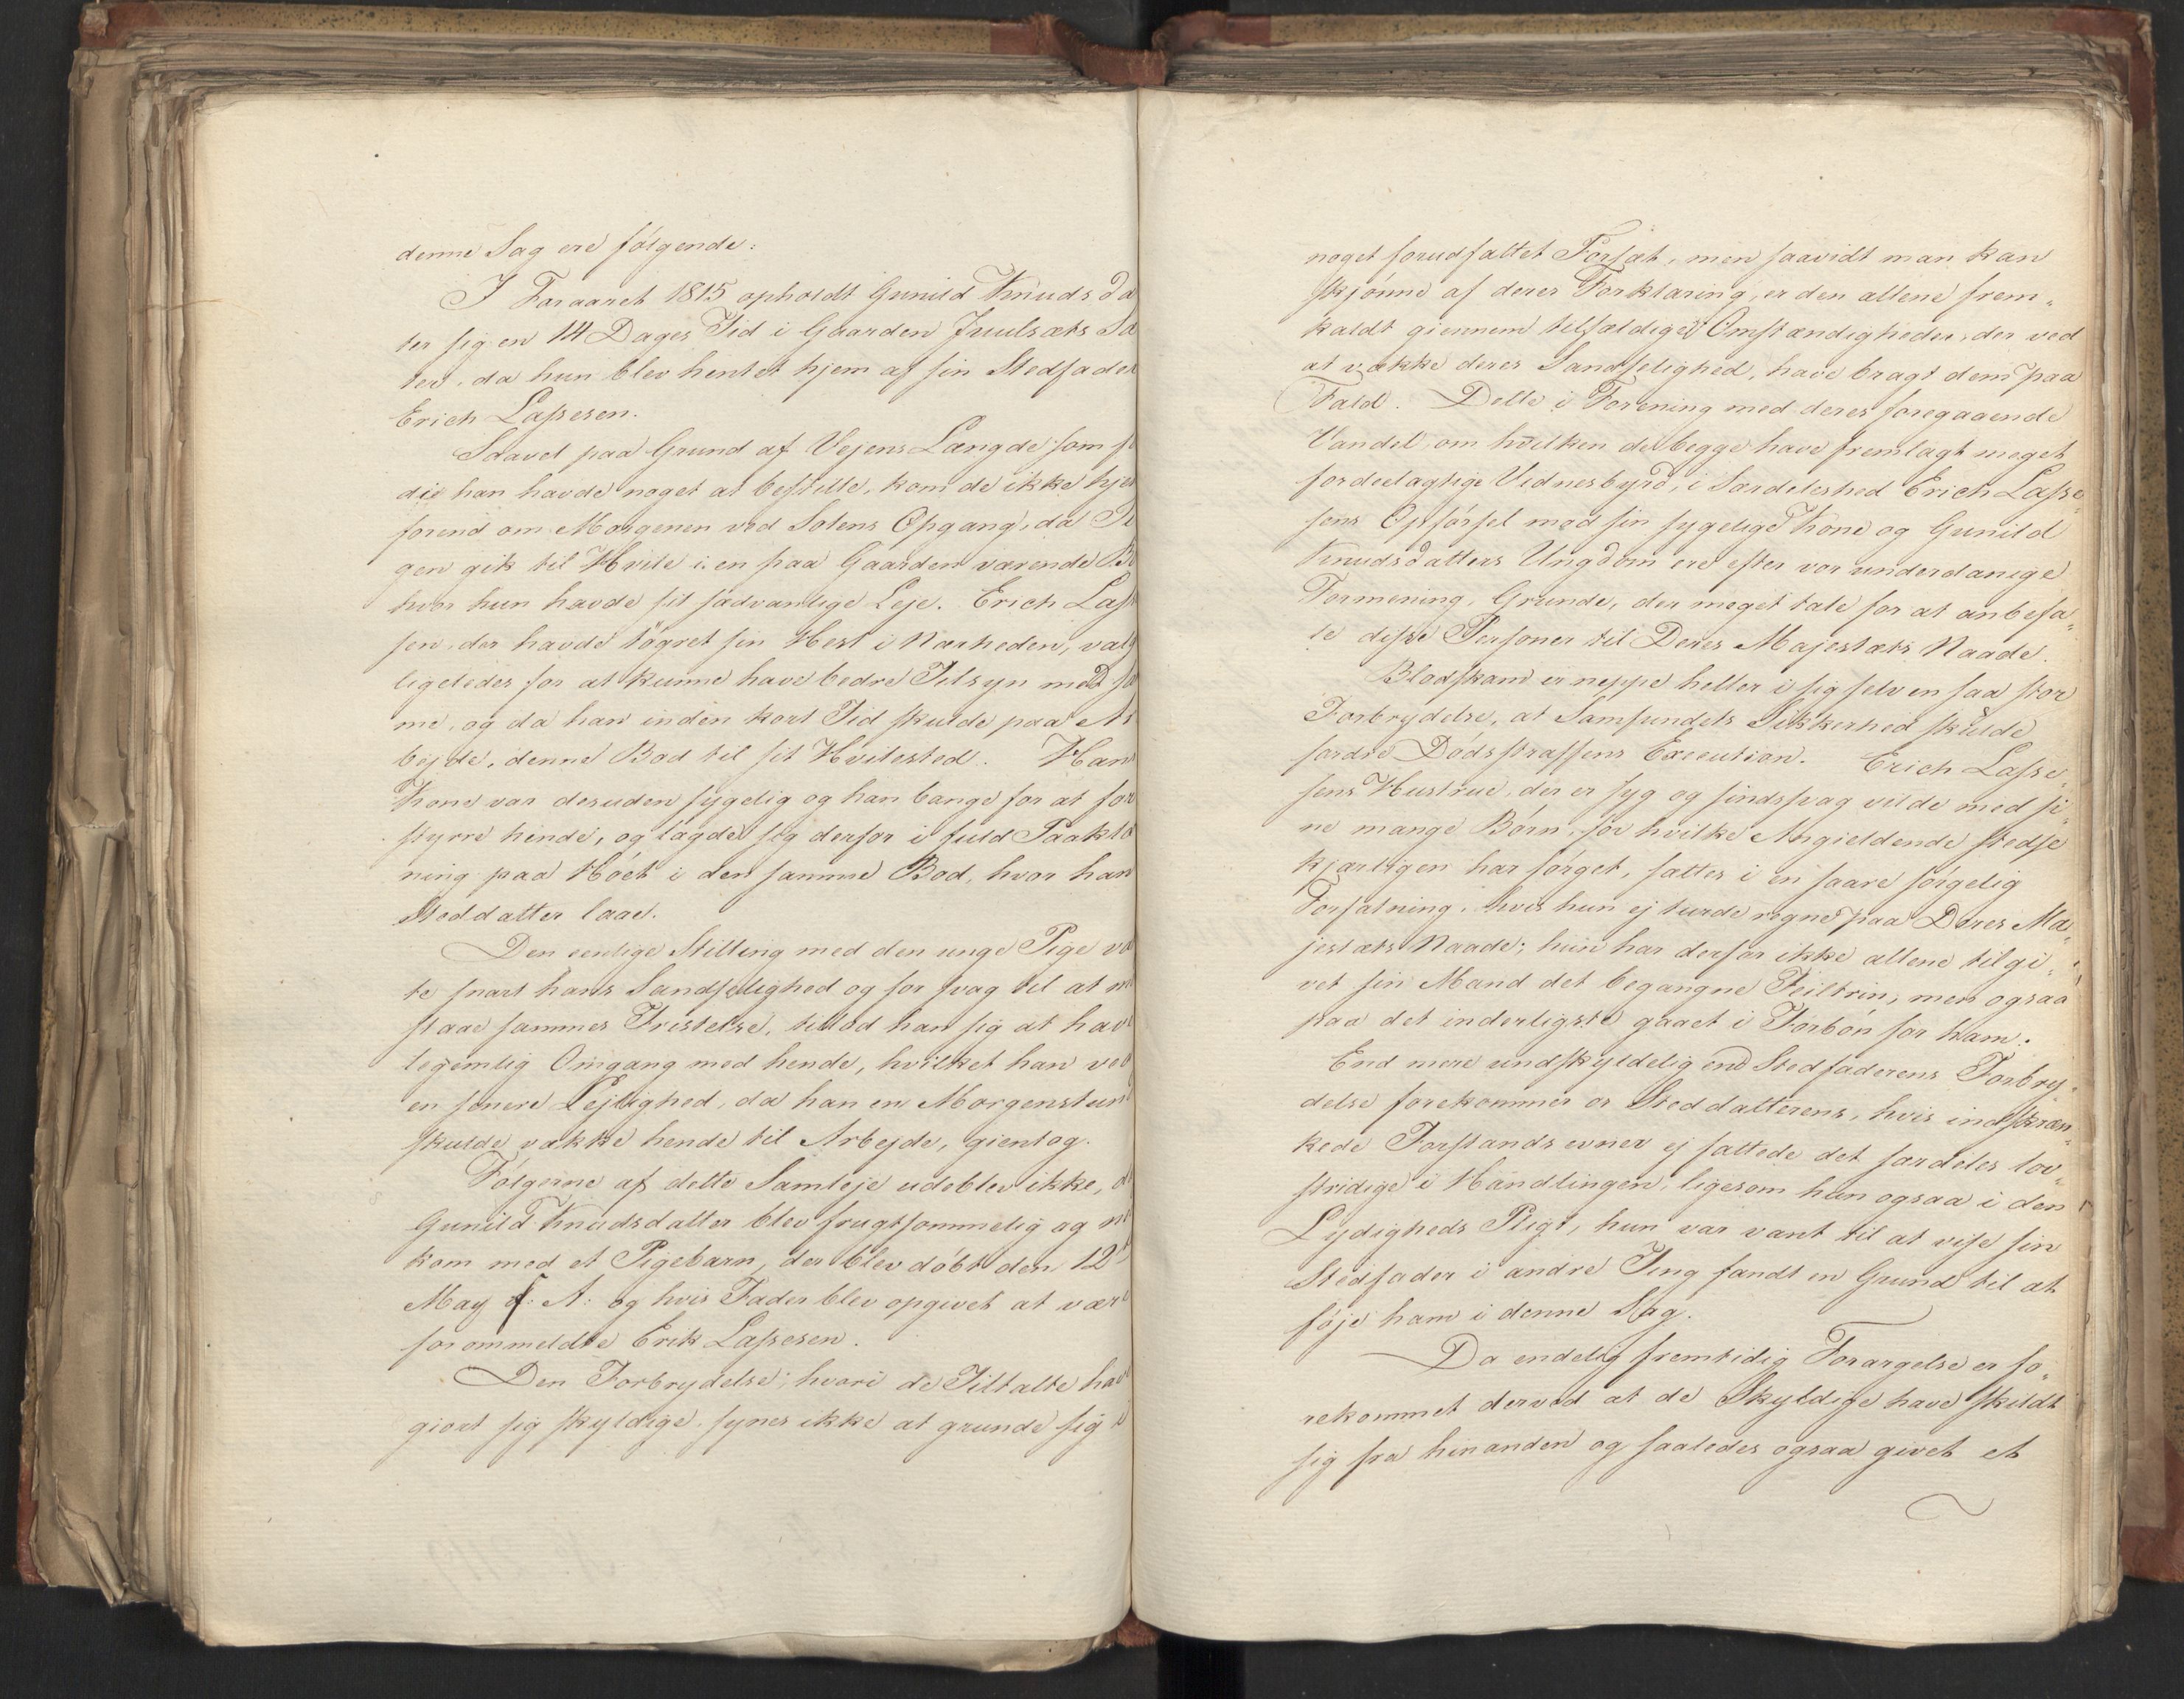 denne Sag ere følgende:
I Foraaret 1815 opholdt Gunild Knudsda
ter sig en 14 Dages Tid i Gaarden Juulsæts Sæ
ter, da hun blev hentet hjem af sin Stedfader
Erich Lassesen.
Saavel paa Grund af Vejens Længde som
di han havde noget at bestille, kom de ikke hje
førend om Morgenen ved Solens Opgang, da Pi
gen gik til Hvile i en paa Gaarden værende Bo
hvor hun havde sit sædvanlige Leje. Erich Lass
sen, der havde tøgret sin Hest i Nærheden, valg
ligeledes for at kunne have bedre Tilsyn med sa
me, og da han inden kort Tid skulde paa Ar
bejde, denne Bod til sit Hvilested. Hans
Kone var desuden sygelig og han bange for at for
styrre hende, og lagde sig derfor i fuld Paaklæ
ning paa Høet i den samme Bod, hvor han
Steddatter laae.
Den eenlige Stilling med den unge Pige va
te snart hans Sandselighed og for svag til at m
staae sammes Fristelse, tillod han sig at have
legemlig Omgang med hende, hvilket han ved
en senere Lejlighed, da han en Morgenstun
skulde vække hende til Arbejde, gientog.
Følgerne af dette Samleje udeblev ikke, d
Gunild Knudsdatter blev frugtsommelig og ne
kom med et Pigebarn, der blev døbt den 12te
May f: A: og hvis Fader blev opgivet at være
forommeldte Erik Lassesen.
Den Forbrydelse, hvori de Tiltalte have
giort sig skyldige, synes ikke at grunde sig i
noget forudfattet Forsæt, men saavidt man kan
skjønne af deres Forklaring, er den allene frem„
kaldt giennem tilfældige Omstændigheder, der ved
at vække deres Sandselighed, have bragt dem paa
Fald. Dette i Forening med deres foregaaende
Vandel, om hvilken de begge have fremlagt meget
fordeelagtige Vidnesbyrd, i Særdeleshed Erich Lasse„
sens Opførsel mod sin sygelige Kone og Gunild
Knudsdatters Ungdom ere efter vor underdanige
Formening, Grunde, der meget tale for at anbefa„
le disse Personer til Deres Majestæts Naade.
Blodskam er neppe heller i sig selv en saa stor
Forbrydelse, at Samfundets Sikkerhed skulde
fordre Dødsstraffens Execution. Erich Lasse„
sens Hustrue, der er syg og sindssvag vilde med si„
ne mange Børn, for hvilke Angieldende stedse
kjærligen har sørget, sættes i en saare sørgelig
Forfatning, hvis hun ej turde regne paa Deres Ma„
jestæts Naade; hun har derfor ikke allene tilgi„
vet sin Mand det begangne Feiltrin, men ogsaa
paa det inderligste gaaet i Forbøn for ham.
End mere undskyldelig end Stedfaderens Forbry„
delse forekommer os Steddatterens, hvis indskræn„
kede Forstandsevner ej fattede det særdeles lov„
stridige i Handlingen, ligesom hun ogsaa i den
Lydigheds Pligt, hun var vant til at vise sin
Stedfader i andre Ting fandt en Grund til at
føje ham i denne Sag.
Da endelig fremtidig Forargelse er fo„
rekommet derved at de Skyldige have skildt
sig fra hinanden og saaledes ogsaa givet et